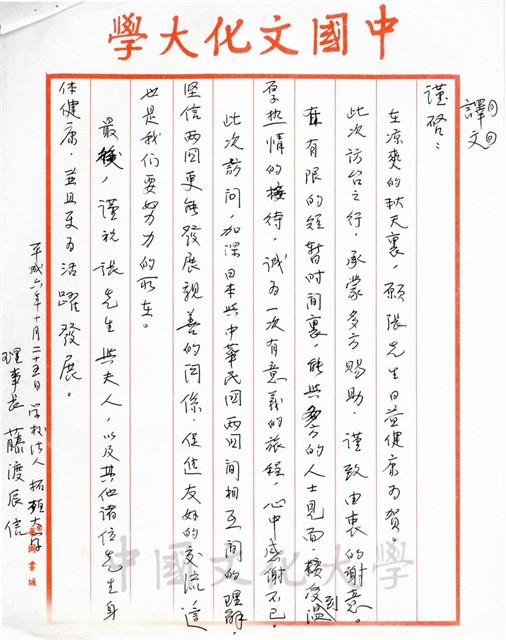 中國文化大學
譯文
謹啓：
在凉爽的秋天裏，願張先生日益健康为賀。
此次訪台之行，承蒙多方賜助，謹致由衷的謝意。
在有限的短暫时间裏，能與多方的人士見面，接受温
厚热情的接待，诚为一次有意義的旅程，心中感谢不已。
此次訪问，加深日本與中華民国两国间相互间的理解，
坚信两国更能發展親善的関係，促進友好的交流，這
也是我们要努力的所在。
最後，謹祝張先生與夫人，以及其他諸位先生身
体健康，並且更为活躍發展。
平成六年十月二十五日 学校法人 拓殖大学
理事長 藤渡辰信
中國文化大學